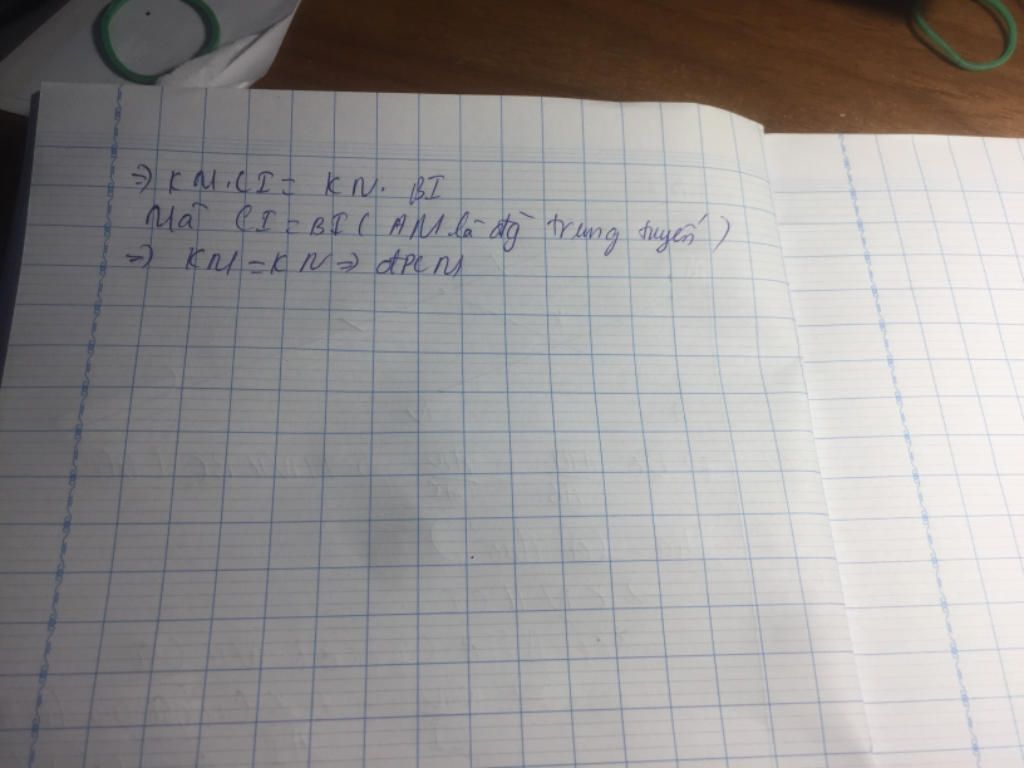 => KM.CI = KN. BI
Mà CI = BI ( AM là đg trung tuyến )
=> KM = KN => đpcm